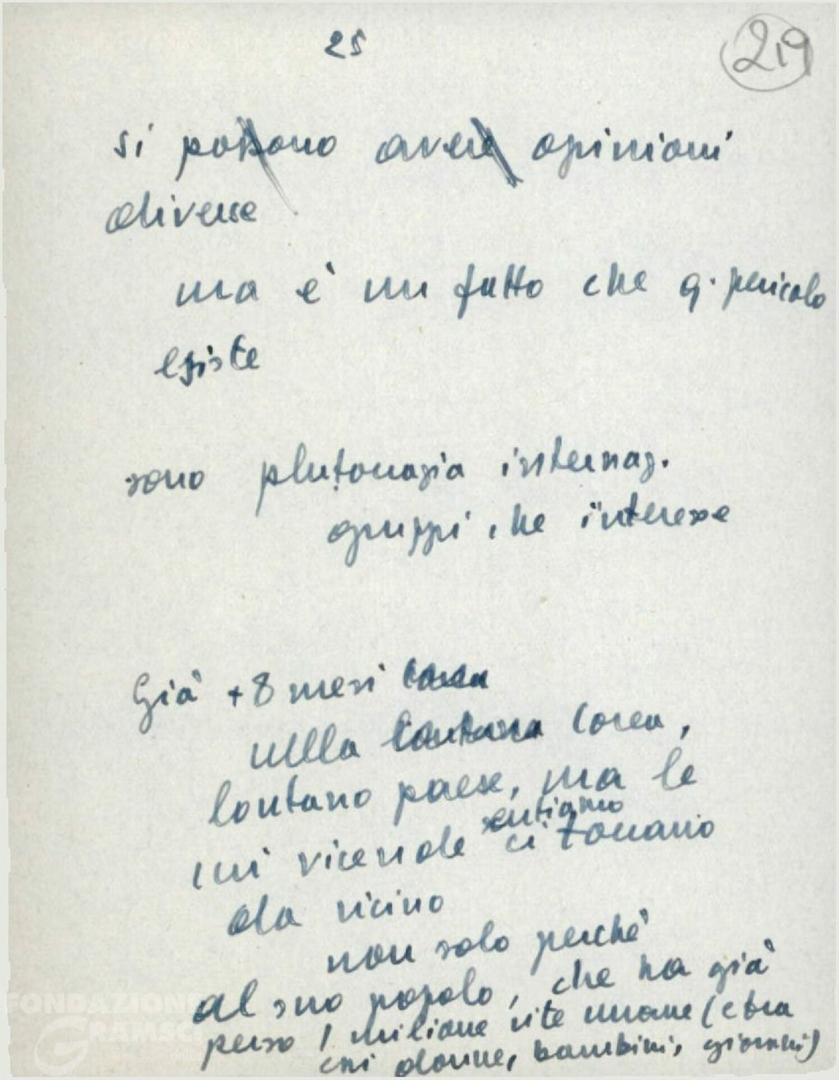 25
219
si possono avere opinioni
diverse
ma è un fatto che q. pericolo
esiste
sono plutocrazia internaz.
gruppi che interesse
Già + 8 mesi Corea
nella lontana Corea,
lontano paese, ma le
sentiamo
cui vicende ci toccano
da vicino
non solo perchè
al suo popolo, che ha già
perso 1 milione vite umane (tra
cui donne, bambini, giovani)
FONDAZIONE
GRAMSCI